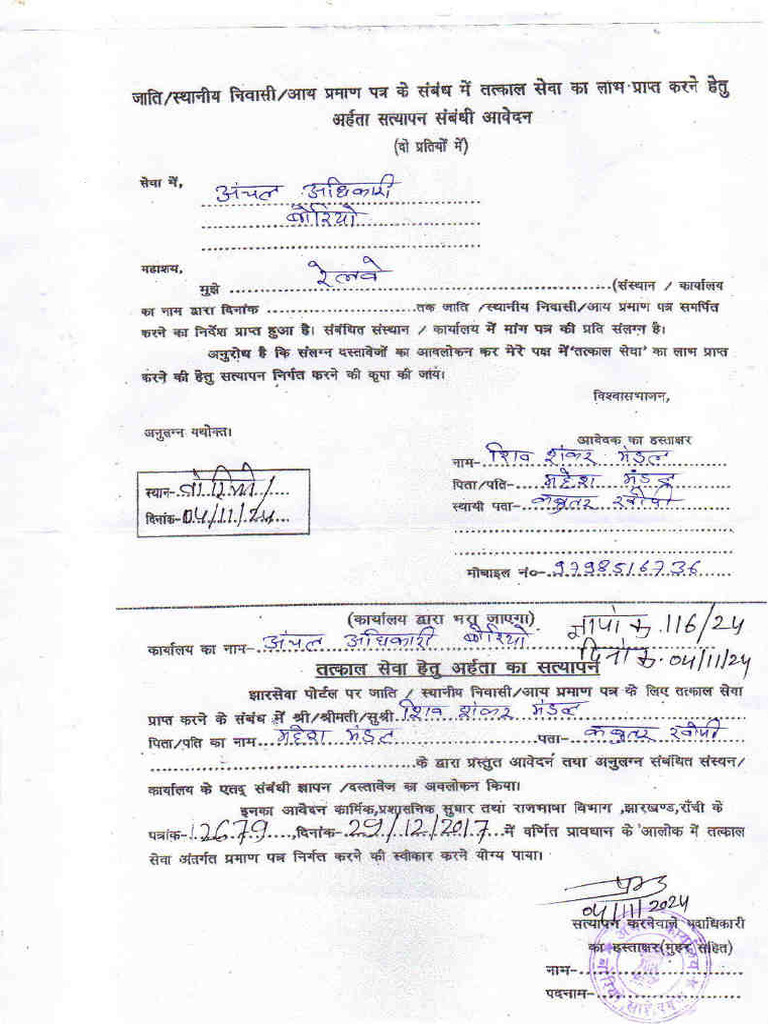 जाति/स्थानीय निवासी/आय प्रमाण पत्र के संबंध में तत्काल सेवा का लाभ प्राप्त करने हेतु
अर्हता सत्यापन संबंधी आवेदन
(दो प्रतियों में)
सेवा में,
अंचल अधिकारी
बोरियो
महाशय,
मुझे रेलवे (संस्थान / कार्यालय
का नाम द्वारा दिनांक तक जाति /स्थानीय निवासी/आय प्रमाण पत्र समर्पित
करने का निर्देश प्राप्त हुआ है। संबंधित संस्थान / कार्यालय में मांग पत्र की प्रति संलग्न है।
अनुरोध है कि संलग्न दस्तावेजों का आवलोकन कर मेरे पक्ष में 'तत्काल सेवा' का लाभ प्राप्त
करने की हेतु सत्यापन निर्गत करने की कृपा की जाय।
विश्वासभाजन,
अनुलग्न यथोक्त।
आवेदक का हस्ताक्षर
नाम- शिव शंकर मंडल
पिता/पति- महेश मंडल
स्थायी पता- कबुतर खोपी
स्थान- बोरियो
दिनांक- 04/11/24
मोबाइल नं०- 9798516736
(कार्यालय द्वारा भरा जाएगा)
कार्यालय का नाम- अंचल अधिकारी बोरियो
ज्ञापांक 116/24
दिनांक 04/11/24
तत्काल सेवा हेतु अर्हता का सत्यापन
झारसेवा पोर्टल पर जाति / स्थानीय निवासी/आय प्रमाण पत्र के लिए तत्काल सेवा
प्राप्त करने के संबंध में श्री/श्रीमती/सुश्री शिव शंकर मंडल
पिता/पति का नाम महेश मंडल पता- कबुतर खोपी
के द्वारा प्रस्तुत आवेदन तथा अनुलग्न संबंधित संस्थन/
कार्यालय के एतद् संबंधी ज्ञापन /दस्तावेज का अवलोकन किया।
इनका आवेदन कार्मिक,प्रशासनिक सुधार तथा राजभाषा विभाग ,झारखण्ड,राँची के
पत्रांक- 12679 ,दिनांक- 29/12/2017 में वर्णित प्रावधान के आलोक में तत्काल
सेवा अंतर्गत प्रमाण पत्र निर्गत करने की स्वीकार करने योग्य पाया।
04/11/2024
सत्यापन करनेवाले पदाधिकारी
का हस्ताक्षर(मुहर सहित)
नाम-
पदनाम-